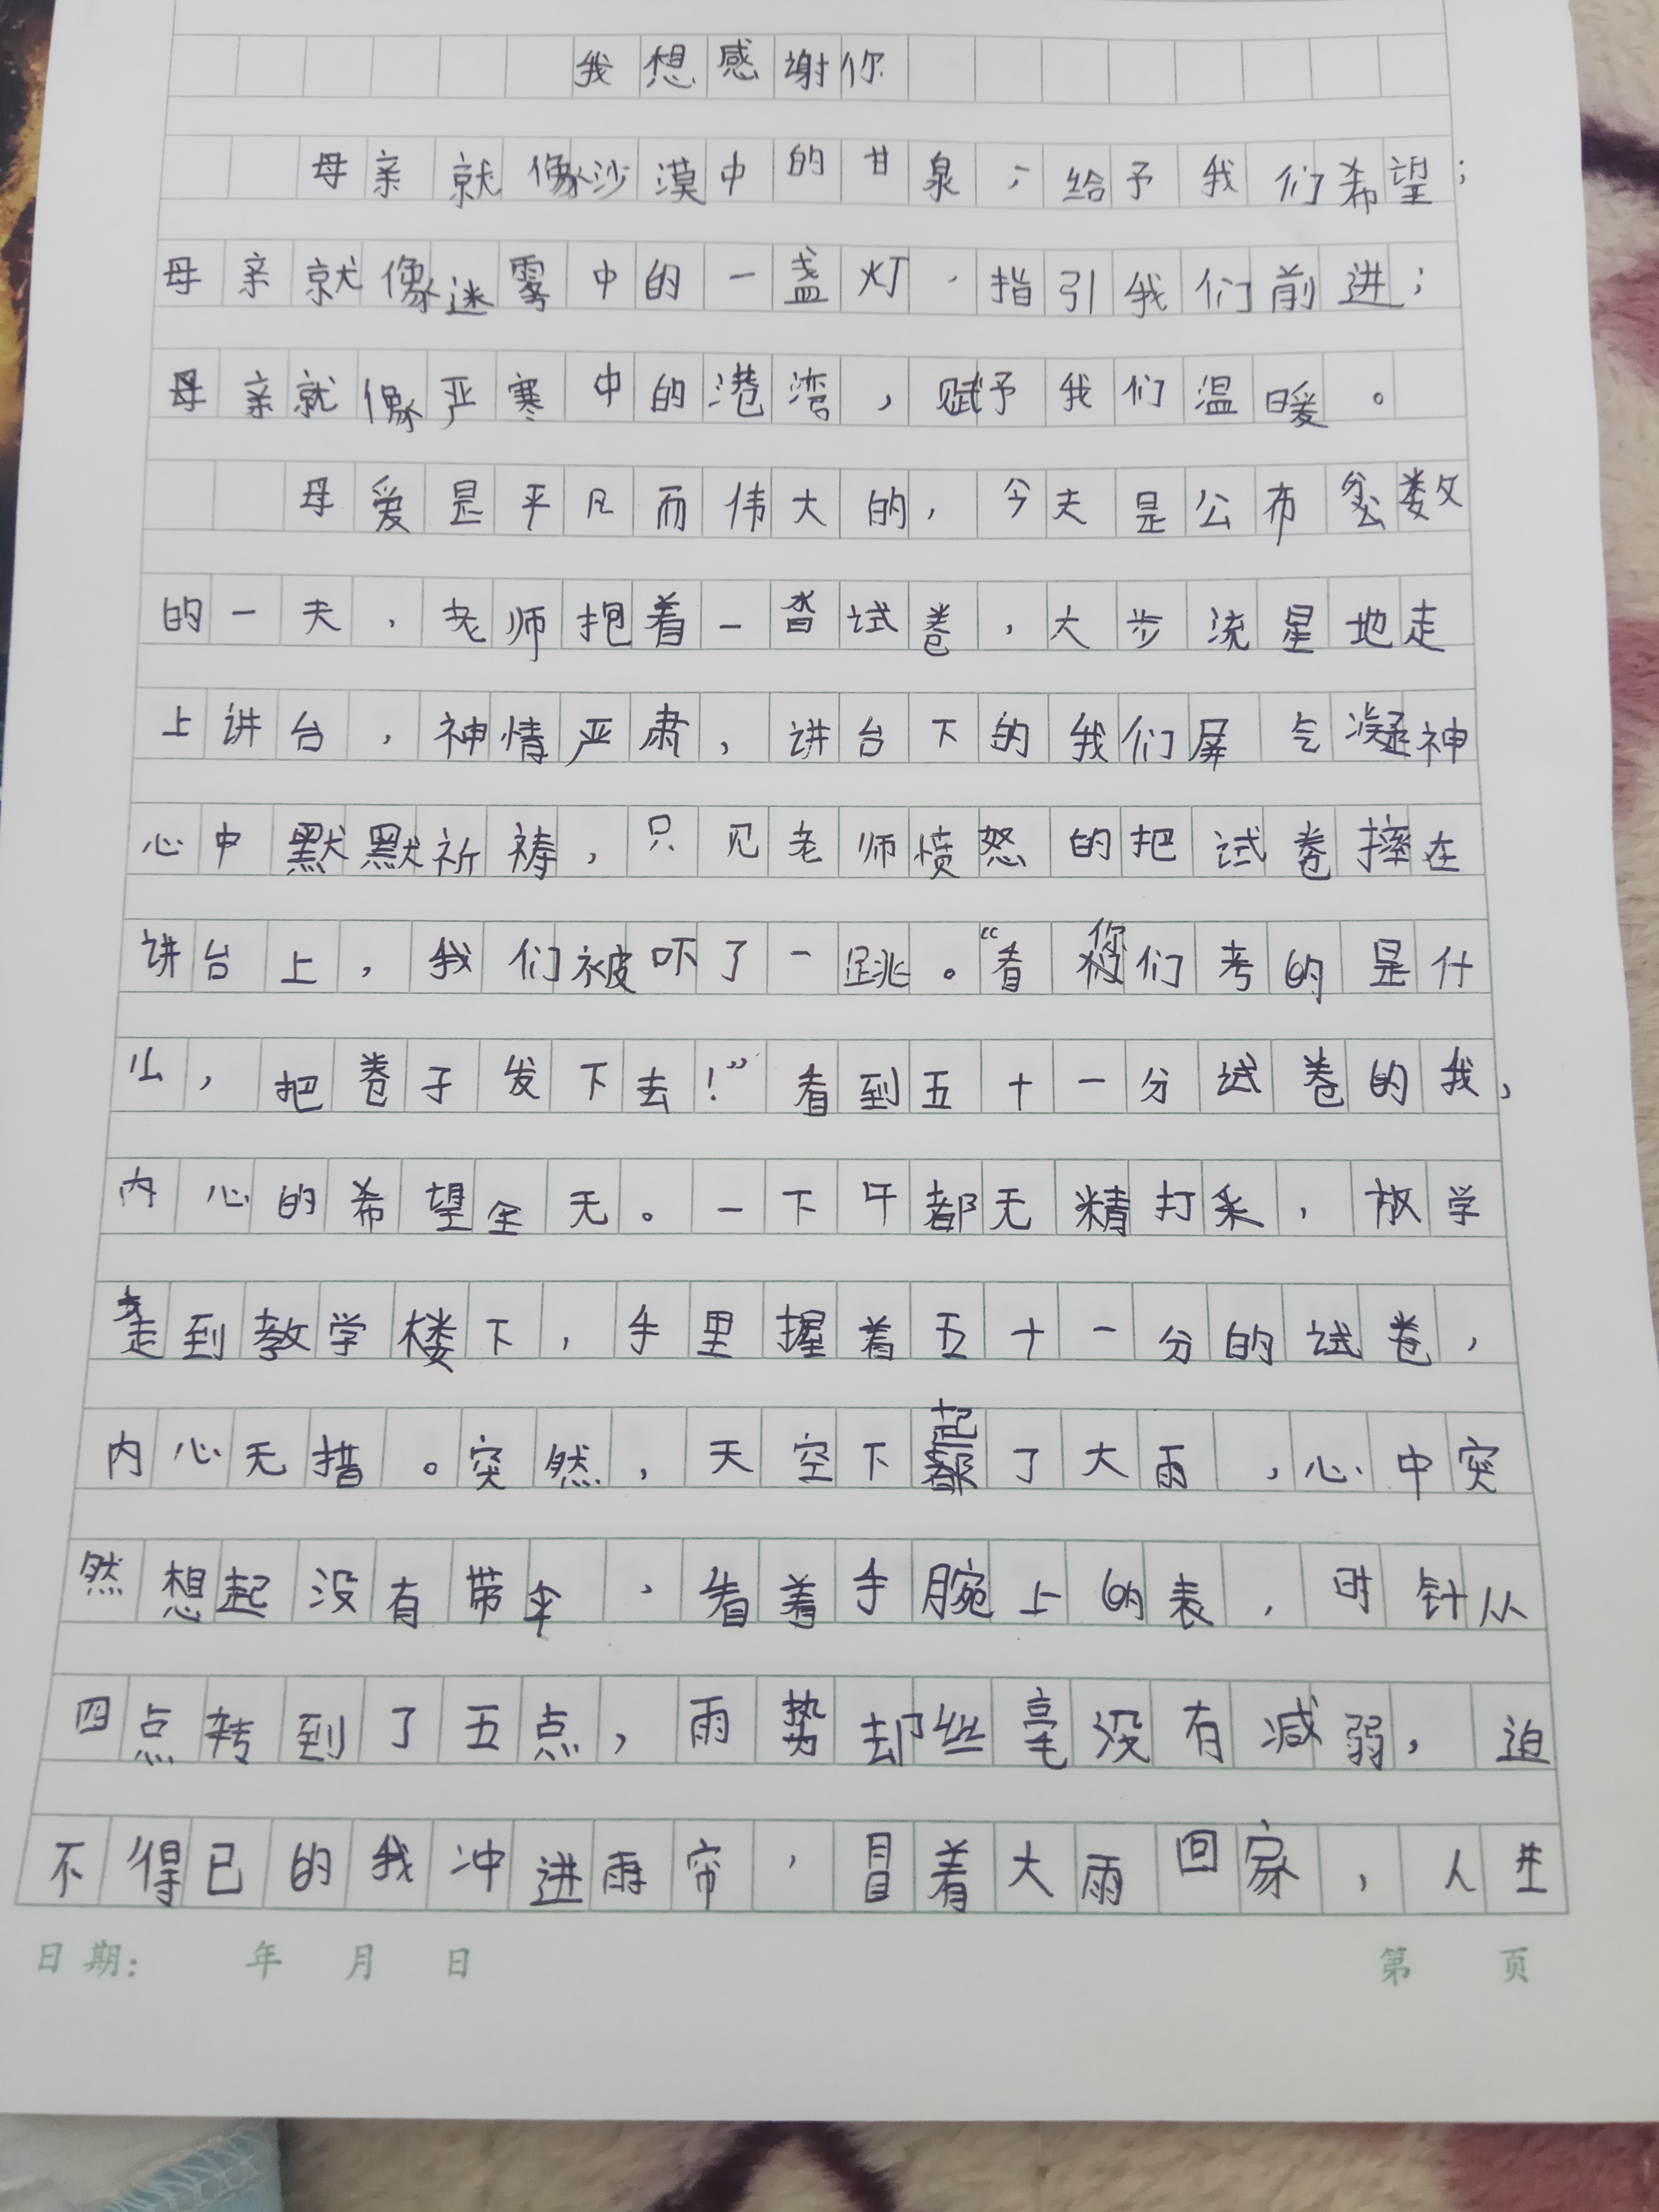 我想感谢你
母亲就像沙漠中的甘泉；给予我们希望；
母亲就像迷雾中的一盏灯，指引我们前进；
母亲就像严寒中的港湾，赋予我们温暖。
母爱是平凡而伟大的，今天是公布分数
的一天，老师抱着一沓试卷，大步流星地走
上讲台，神情严肃，讲台下的我们屏气凝神
心中默默祈祷，只见老师愤怒的把试卷摔在
讲台上，我们被吓了一跳。“看你们考的是什
么，把卷子发下去！”看到五十一分试卷的我，
内心的希望全无。一下午都无精打采，放学
走到教学楼下，手里握着五十一分的试卷，
内心无措。突然，天空下起了大雨，心中突
然想起没有带伞，看着手腕上的表，时针从
四点转到了五点，雨势却丝毫没有减弱，迫
不得已的我冲进雨帘，冒着大雨回家，人生
日期： 年 月 日 第 页